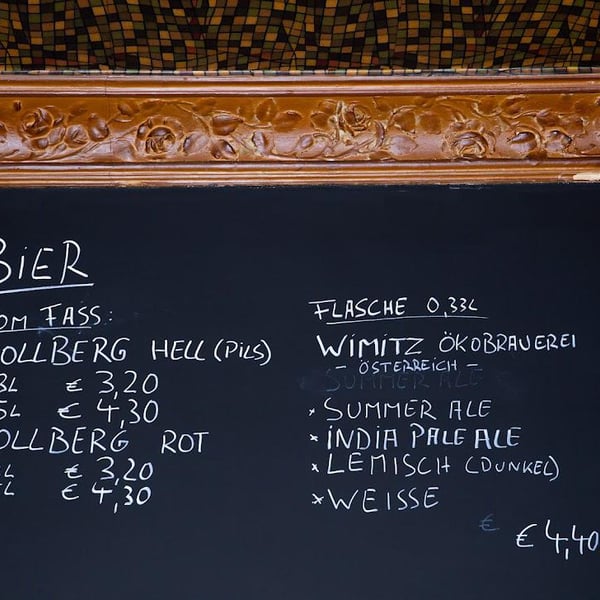 BIER
OM FASS:
OLLBERG HELL (PILS)
3L € 3,20
5L € 4,30
OLLBERG ROT
L € 3,20
L € 4,30
FLASCHE 0,33L
WIMITZ ÖKOBRAUEREI
- ÖSTERREICH -
SUMMER ALE
× SUMMER ALE
× INDIA PALE ALE
× LEMISCH (DUNKEL)
× WEISSE
€
€ 4,40